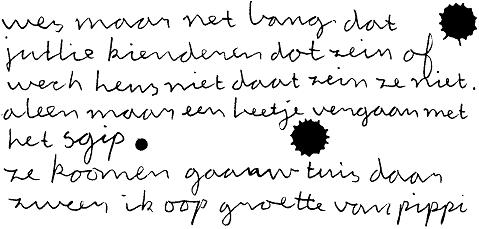 wes maar net bang dat
jullie kienderen dot zein of
wech hens niet daat zein ze niet.
aleen maar een beetje vergaan met
het sgip
ze koomen gaauw tuis daar
zweer ik oop groette van pippi